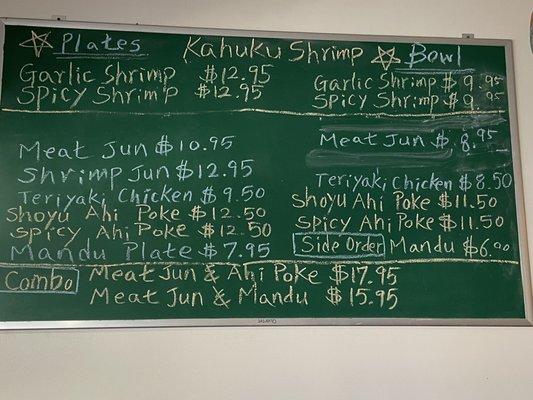 Plates Kahuku Shrimp Bowl
Garlic Shrimp $12.95
Spicy Shrimp $12.95
Garlic Shrimp $9.95
Spicy Shrimp $9.95
Meat Jun $10.95
Shrimp Jun $12.95
Teriyaki Chicken $9.50
Shoyu Ahi Poke $12.50
Spicy Ahi Poke $12.50
Mandu Plate $7.95
Meat Jun $8.95
Teriyaki Chicken $8.50
Shoyu Ahi Poke $11.50
Spicy Ahi Poke $11.50
Side Order Mandu $6.00
Combo Meat Jun & Ahi Poke $17.95
Meat Jun & Mandu $15.95
Quartet